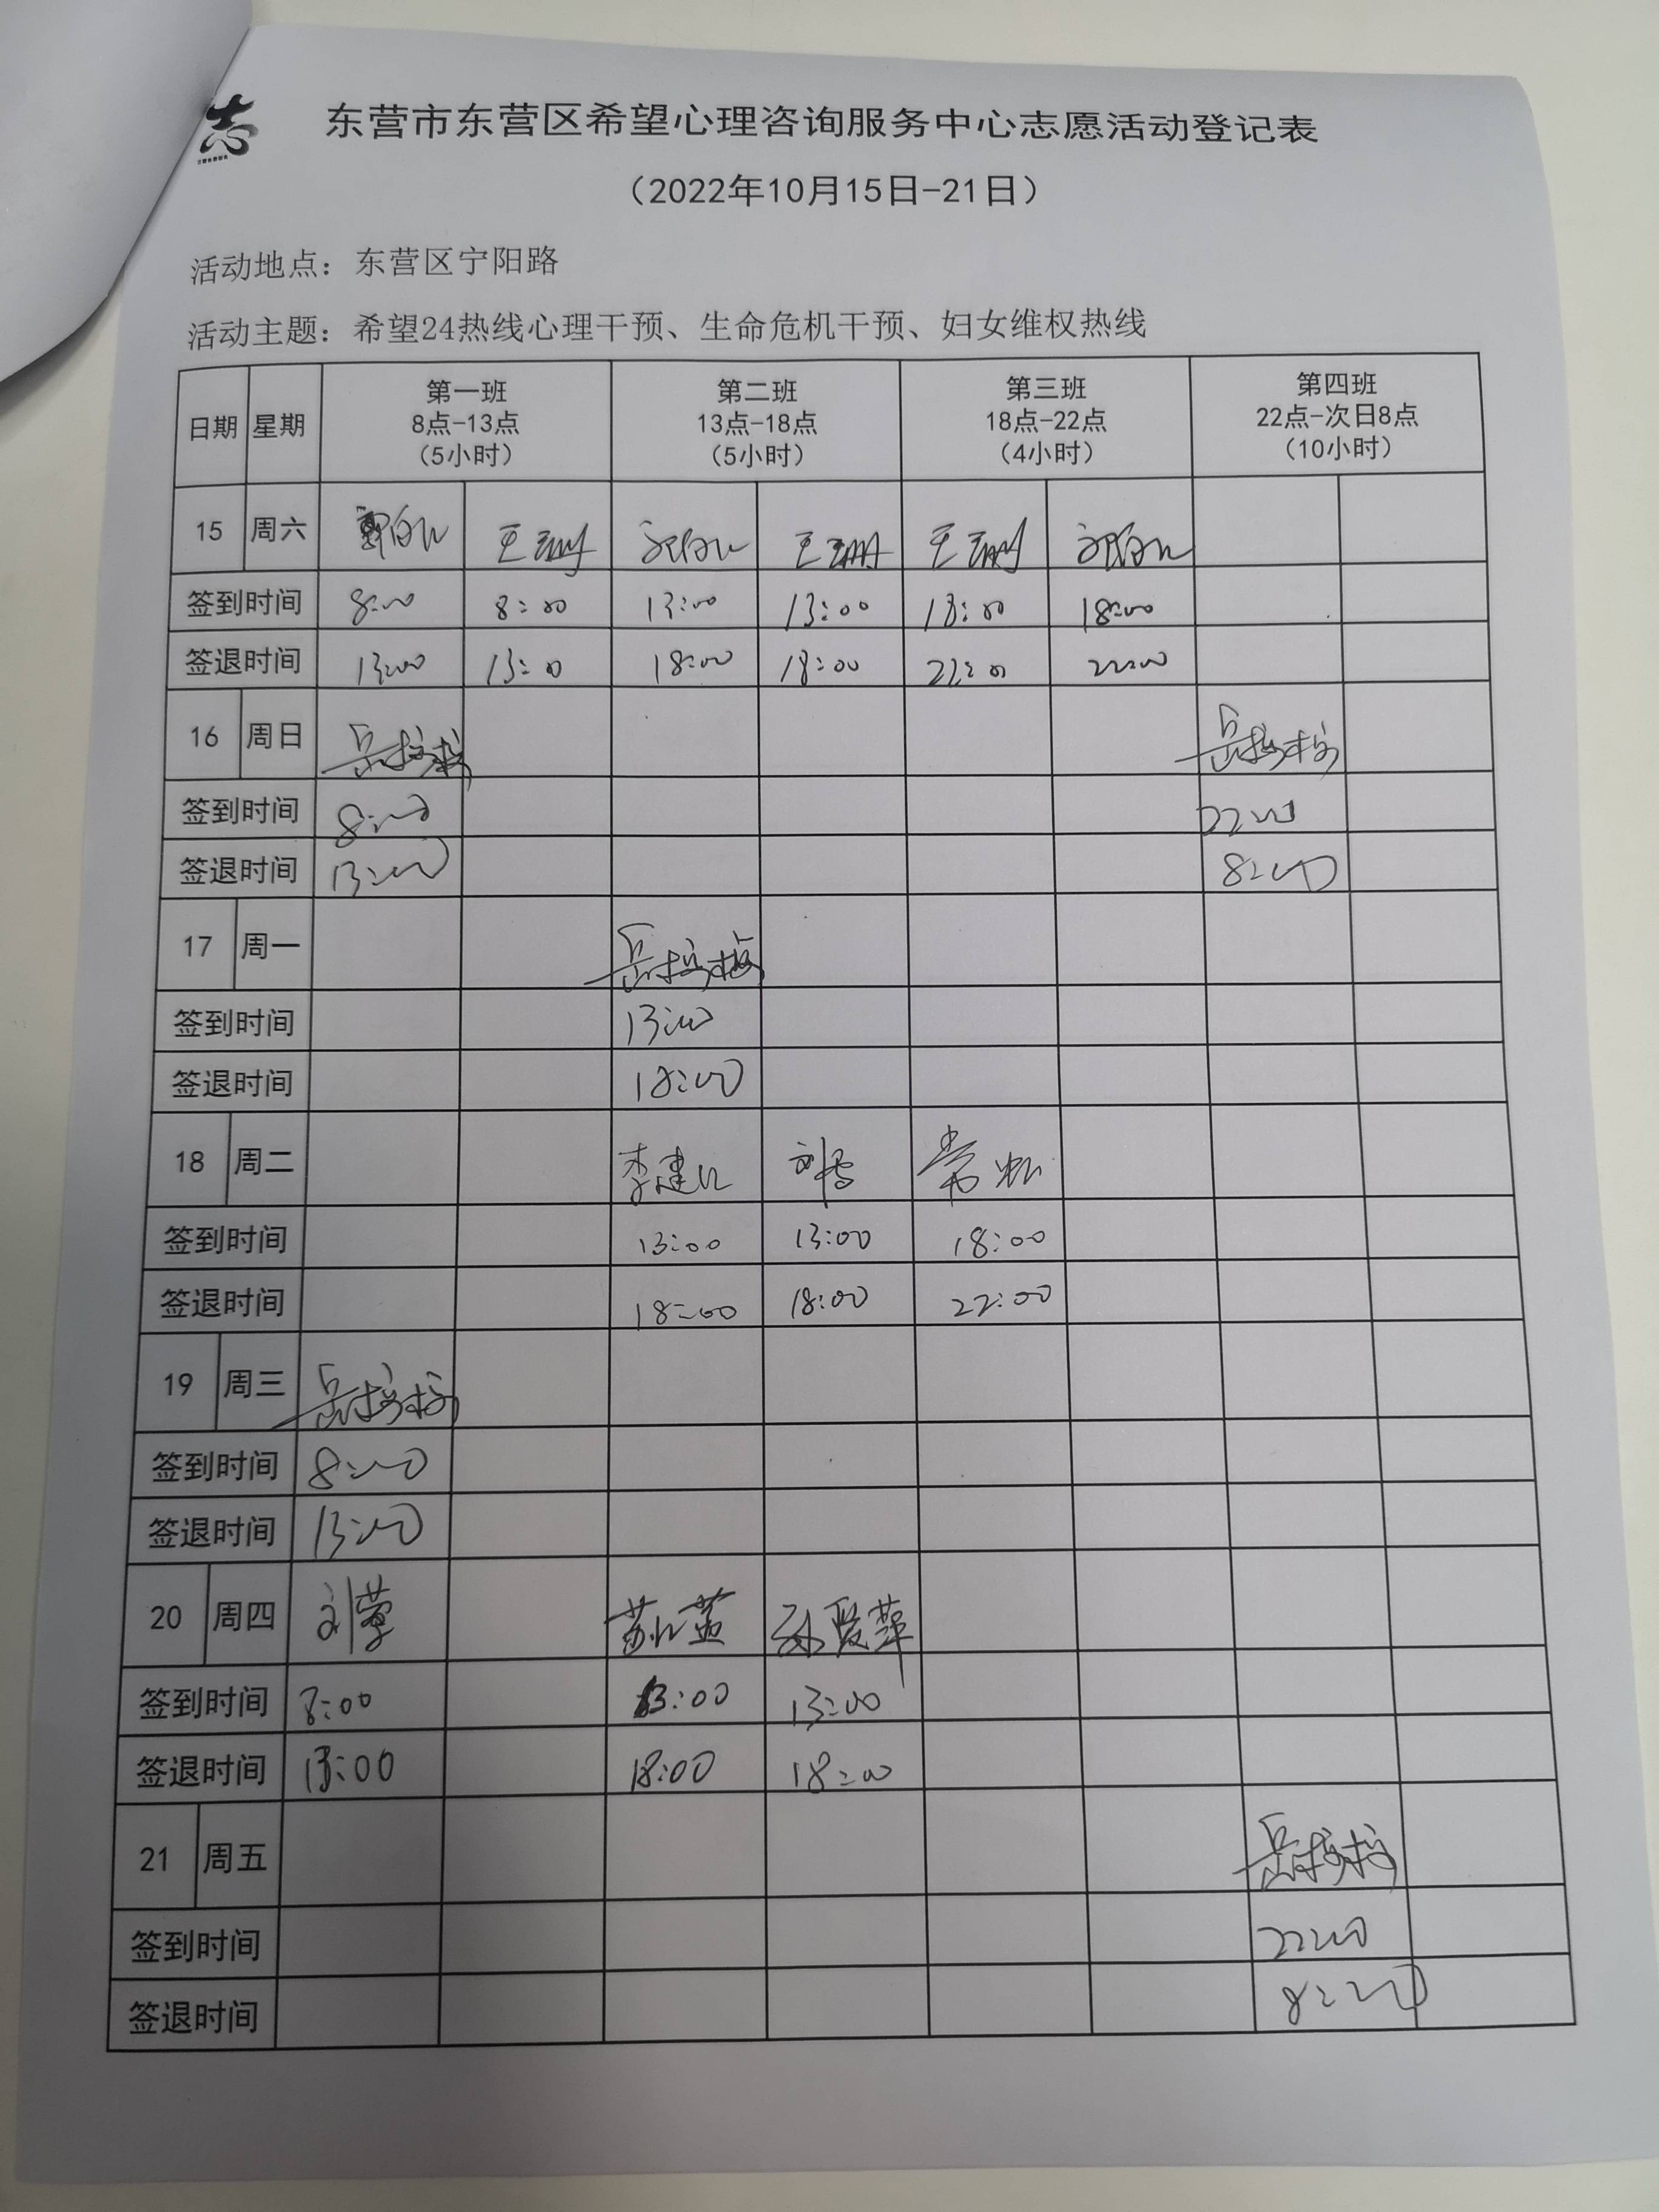 志
东营市东营区希望心理咨询服务中心志愿活动登记表
（2022年10月15日-21日）
活动地点：东营区宁阳路
活动主题：希望24热线心理干预、生命危机干预、妇女维权热线
日期 星期 第一班 8点-13点 （5小时） 第二班 13点-18点 （5小时） 第三班 18点-22点 （4小时） 第四班 22点-次日8点 （10小时）
15 周六
签到时间 8:00 8:00 13:00 13:00 18:00 18:00
签退时间 13:00 13:00 18:00 18:00 22:00 22:00
16 周日
签到时间 8:00 22:00
签退时间 13:00 8:00
17 周一
签到时间 13:00
签退时间 18:00
18 周二 李建江
签到时间 13:00 13:00 18:00
签退时间 18:00 18:00 22:00
19 周三
签到时间 8:00
签退时间 13:00
20 周四
签到时间 8:00 13:00 13:00
签退时间 13:00 18:00 18:00
21 周五
签到时间 22:00
签退时间 8:00